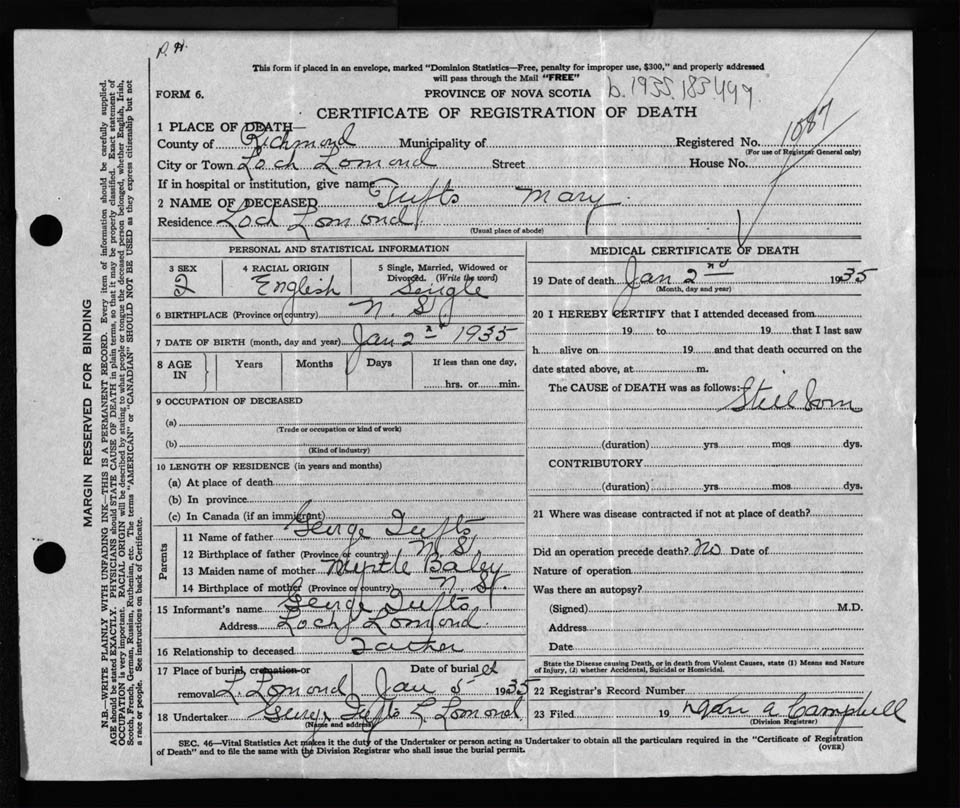 P. H.
This form if placed in an envelope, marked "Dominion Statistics—Free, penalty for improper use, $300," and properly addressed
will pass through the Mail "FREE"
FORM 6.
PROVINCE OF NOVA SCOTIA
b. 1935.183.499
CERTIFICATE OF REGISTRATION OF DEATH
1 PLACE OF DEATH—
County of Richmond Municipality of Registered No. 1087
(For use of Registrar General only)
City or Town Loch Lomond Street House No.
If in hospital or institution, give name
2 NAME OF DECEASED Tufts Mary
Residence Loch Lomond
(Usual place of abode)
PERSONAL AND STATISTICAL INFORMATION
3 SEX 4 RACIAL ORIGIN 5 Single, Married, Widowed or
Divorced. (Write the word)
English Single
6 BIRTHPLACE (Province or country) N. S.
7 DATE OF BIRTH (month, day and year) Jan 2nd 1935
8 AGE IN Years Months Days If less than one day,
hrs. or min.
9 OCCUPATION OF DECEASED
(a)
(Trade or occupation or kind of work)
(b)
(Kind of industry)
10 LENGTH OF RESIDENCE (in years and months)
(a) At place of death
(b) In province
(c) In Canada (if an immigrant)
Parents
11 Name of father George Tufts
12 Birthplace of father (Province or country) N S.
13 Maiden name of mother Myrtle Baley
14 Birthplace of mother (Province or country) N. S.
15 Informant's name George Tufts
Address Loch Lomond
16 Relationship to deceased Father
17 Place of burial cremation or
removal L Lomond
Date of burial
Jan 5 1935
18 Undertaker George Tufts L Lomond
(Name and address)
MEDICAL CERTIFICATE OF DEATH
19 Date of death Jan 2nd 1935
(Month, day and year)
20 I HEREBY CERTIFY that I attended deceased from
19 to 19 that I last saw
h alive on 19 and that death occurred on the
date stated above, at m.
The CAUSE of DEATH was as follows:
Still born
(duration) yrs mos dys.
CONTRIBUTORY
(duration) yrs mos dys.
21 Where was disease contracted if not at place of death?
Did an operation precede death? no Date of
Nature of operation
Was there an autopsy?
(Signed) M.D.
Address
Date
State the Disease causing Death, or in death from Violent Causes, state (1) Means and Nature
of Injury, (2) whether Accidental, Suicidal or Homicidal.
22 Registrar's Record Number
23 Filed 19 A Campbell
(Division Registrar)
SEC. 46—Vital Statistics Act makes it the duty of the Undertaker or person acting as Undertaker to obtain all the particulars required in the "Certificate of Registration
of Death" and to file the same with the Division Registrar who shall issue the burial permit.
(OVER)
MARGIN RESERVED FOR BINDING
N.B.—WRITE PLAINLY WITH UNFADING INK—THIS IS A PERMANENT RECORD. Every item of information should be carefully supplied.
AGE should be stated EXACTLY. PHYSICIANS should STATE CAUSE OF DEATH in plain terms, so that it may be properly classified. Exact statement of
OCCUPATION is very important. RACIAL ORIGIN will be described by stating to what people or tongue the deceased person belonged, whether English, Irish,
Scotch, French, German, Russian, Ruthenian, etc. The terms "AMERICAN" or "CANADIAN" SHOULD NOT BE USED as they express citizenship but not
a race or people. See instructions on back of Certificate.